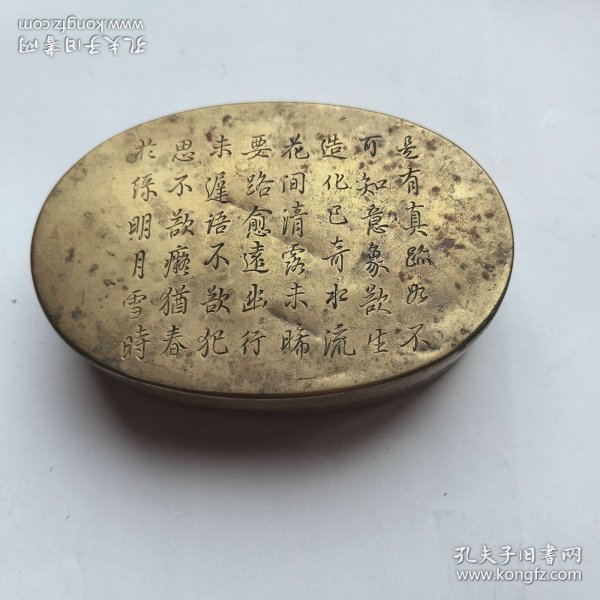 是有真迹如不
可知意象欲生
造化已奇水流
花间清露未晞
要路愈遠幽行
未遲语不欲犯
思不欲癡猶春
於绿明月雪時
孔夫子旧書网
www.kongfz.com
孔夫子旧書网
www.kongfz.com